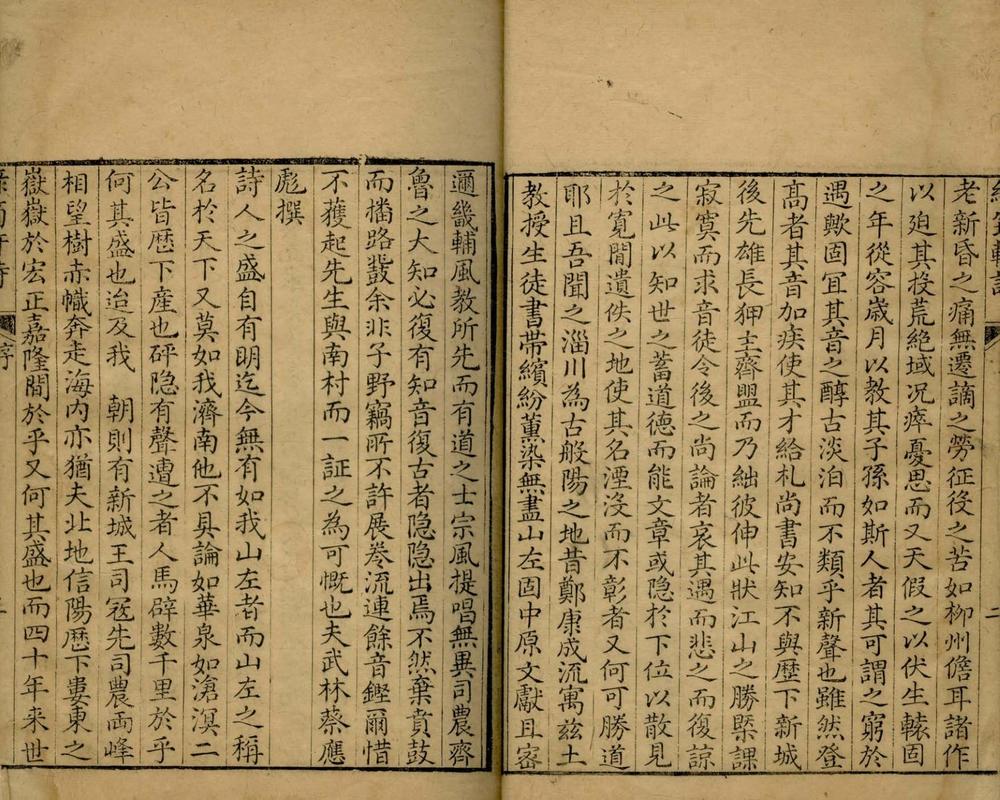 老新昏之痛無遷謫之勞征役之苦如柳州儋耳諸作
以廹其投荒絕域况瘁憂思而又天假之以伏生轅固
之年從容歲月以教其子孫如斯人者其可謂之窮於
遇歟固宜其音之醇古淡泊而不類乎新聲也雖然登
高者其音加疾使其才給札尚書安知不與歷下新城
後先雄長狎主齊盟而乃絀彼伸此狀江山之勝槩課
寂寞而求音徒令後之尚論者哀其遇而悲之而復諒
之此以知世之蓄道德而能文章或隐於下位以散見
於寬閒遺佚之地使其名湮没而不彰者又何可勝道
耶且吾聞之淄川為古般陽之地昔鄭康成流寓兹土
教授生徒書帶繽紛薰染無盡山左固中原文獻且密
邇畿輔風教所先而有道之士宗風提唱無異司農齊
魯之大知必復有知音復古者隐隐出焉不然棄賁鼓
而播路鼗余非子野竊所不許展卷流連餘音鏗爾惜
不獲起先生與南村而一証之為可慨也夫武林蔡應
彪撰
詩人之盛自有明迄今無有如我山左者而山左之稱
名於天下又莫如我濟南他不具論如華泉如滄溟二
公皆歷下產也砰隐有聲遭之者人馬辟數千里於乎
何其盛也迨及我 朝則有新城王司寇先司農兩峰
相望樹赤幟奔走海内亦猶夫北地信陽歷下婁東之
嶽嶽於宏正嘉隆間於乎又何其盛也而四十年来世
序
二